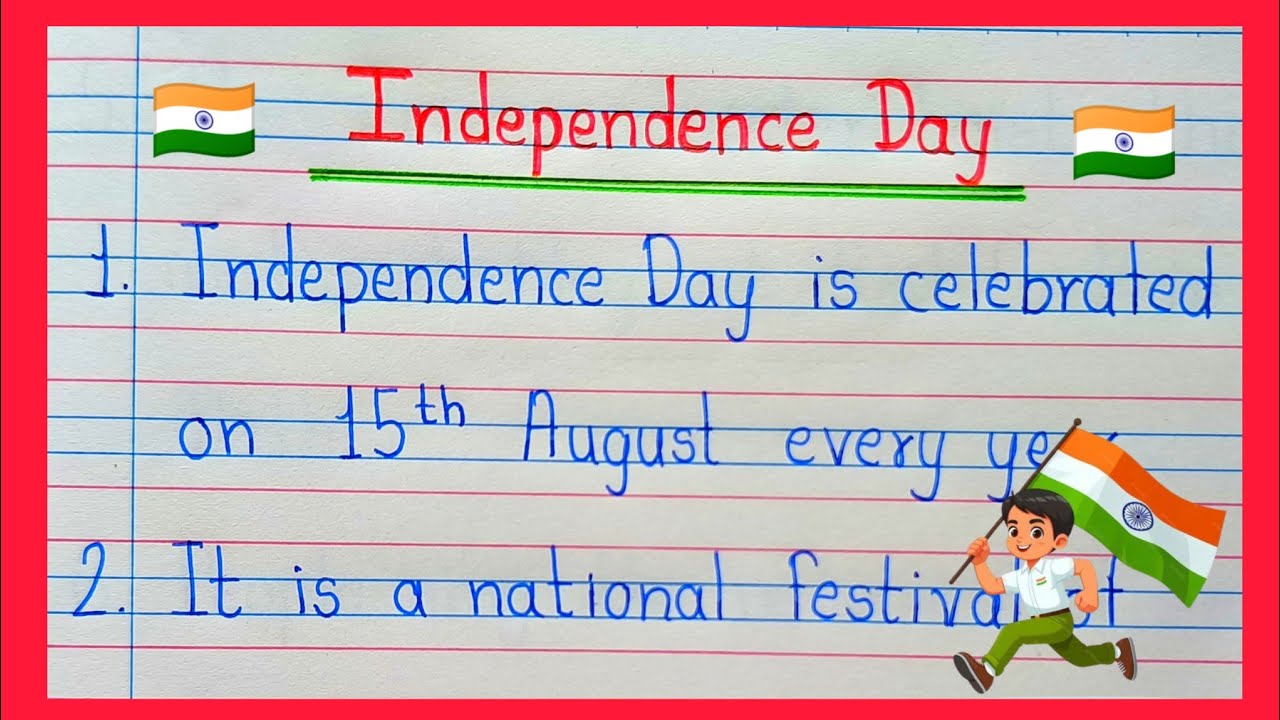 Independence Day
1. Independence Day is celebrated
on 15th August every
2. It is a national festival